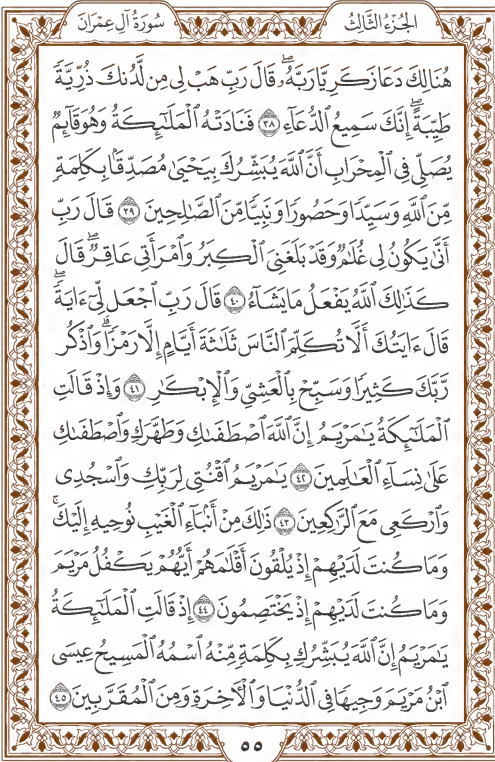 سُورَةُ آلِ عِمْرَانَ
الجُزْءُ الثَّالِثُ
هُنَالِكَ دَعَا زَكَرِيَّا رَبَّهُۥۖ قَالَ رَبِّ هَبْ لِى مِن لَّدُنكَ ذُرِّيَّةً
طَيِّبَةًۖ إِنَّكَ سَمِيعُ ٱلدُّعَآءِ ٣٨ فَنَادَتْهُ ٱلْمَلَٰٓئِكَةُ وَهُوَ قَآئِمٌ
يُصَلِّى فِى ٱلْمِحْرَابِ أَنَّ ٱللَّهَ يُبَشِّرُكَ بِيَحْيَىٰ مُصَدِّقًۢا بِكَلِمَةٍ
مِّنَ ٱللَّهِ وَسَيِّدًا وَحَصُورًا وَنَبِيًّا مِّنَ ٱلصَّٰلِحِينَ ٣٩ قَالَ رَبِّ
أَنَّىٰ يَكُونُ لِى غُلَٰمٌ وَقَدْ بَلَغَنِىَ ٱلْكِبَرُ وَٱمْرَأَتِى عَاقِرٌۖ قَالَ
كَذَٰلِكَ ٱللَّهُ يَفْعَلُ مَا يَشَآءُ ٤٠ قَالَ رَبِّ ٱجْعَل لِّىٓ ءَايَةًۖ
قَالَ ءَايَتُكَ أَلَّا تُكَلِّمَ ٱلنَّاسَ ثَلَٰثَةَ أَيَّامٍ إِلَّا رَمْزًاۗ وَٱذْكُر
رَّبَّكَ كَثِيرًا وَسَبِّحْ بِٱلْعَشِىِّ وَٱلْإِبْكَٰرِ ٤١ وَإِذْ قَالَتِ
ٱلْمَلَٰٓئِكَةُ يَٰمَرْيَمُ إِنَّ ٱللَّهَ ٱصْطَفَىٰكِ وَطَهَّرَكِ وَٱصْطَفَىٰكِ
عَلَىٰ نِسَآءِ ٱلْعَٰلَمِينَ ٤٢ يَٰمَرْيَمُ ٱقْنُتِى لِرَبِّكِ وَٱسْجُدِى
وَٱرْكَعِى مَعَ ٱلرَّٰكِعِينَ ٤٣ ذَٰلِكَ مِنْ أَنۢبَآءِ ٱلْغَيْبِ نُوحِيهِ إِلَيْكَۚ
وَمَا كُنتَ لَدَيْهِمْ إِذْ يُلْقُونَ أَقْلَٰمَهُمْ أَيُّهُمْ يَكْفُلُ مَرْيَمَ
وَمَا كُنتَ لَدَيْهِمْ إِذْ يَخْتَصِمُونَ ٤٤ إِذْ قَالَتِ ٱلْمَلَٰٓئِكَةُ
يَٰمَرْيَمُ إِنَّ ٱللَّهَ يُبَشِّرُكِ بِكَلِمَةٍ مِّنْهُ ٱسْمُهُ ٱلْمَسِيحُ عِيسَى
ٱبْنُ مَرْيَمَ وَجِيهًا فِى ٱلدُّنْيَا وَٱلْءَاخِرَةِ وَمِنَ ٱلْمُقَرَّبِينَ ٤٥
٥٥